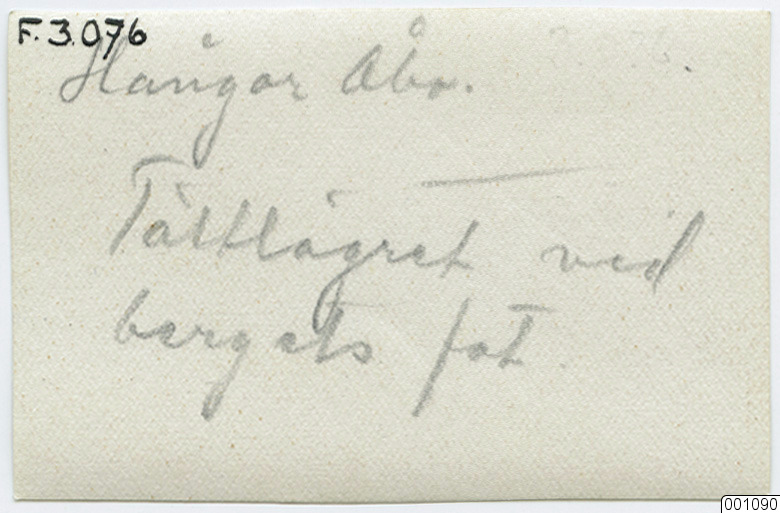 F.3.076
Hangar Åbo.
Tältlägret vid
bergets fot.
001090